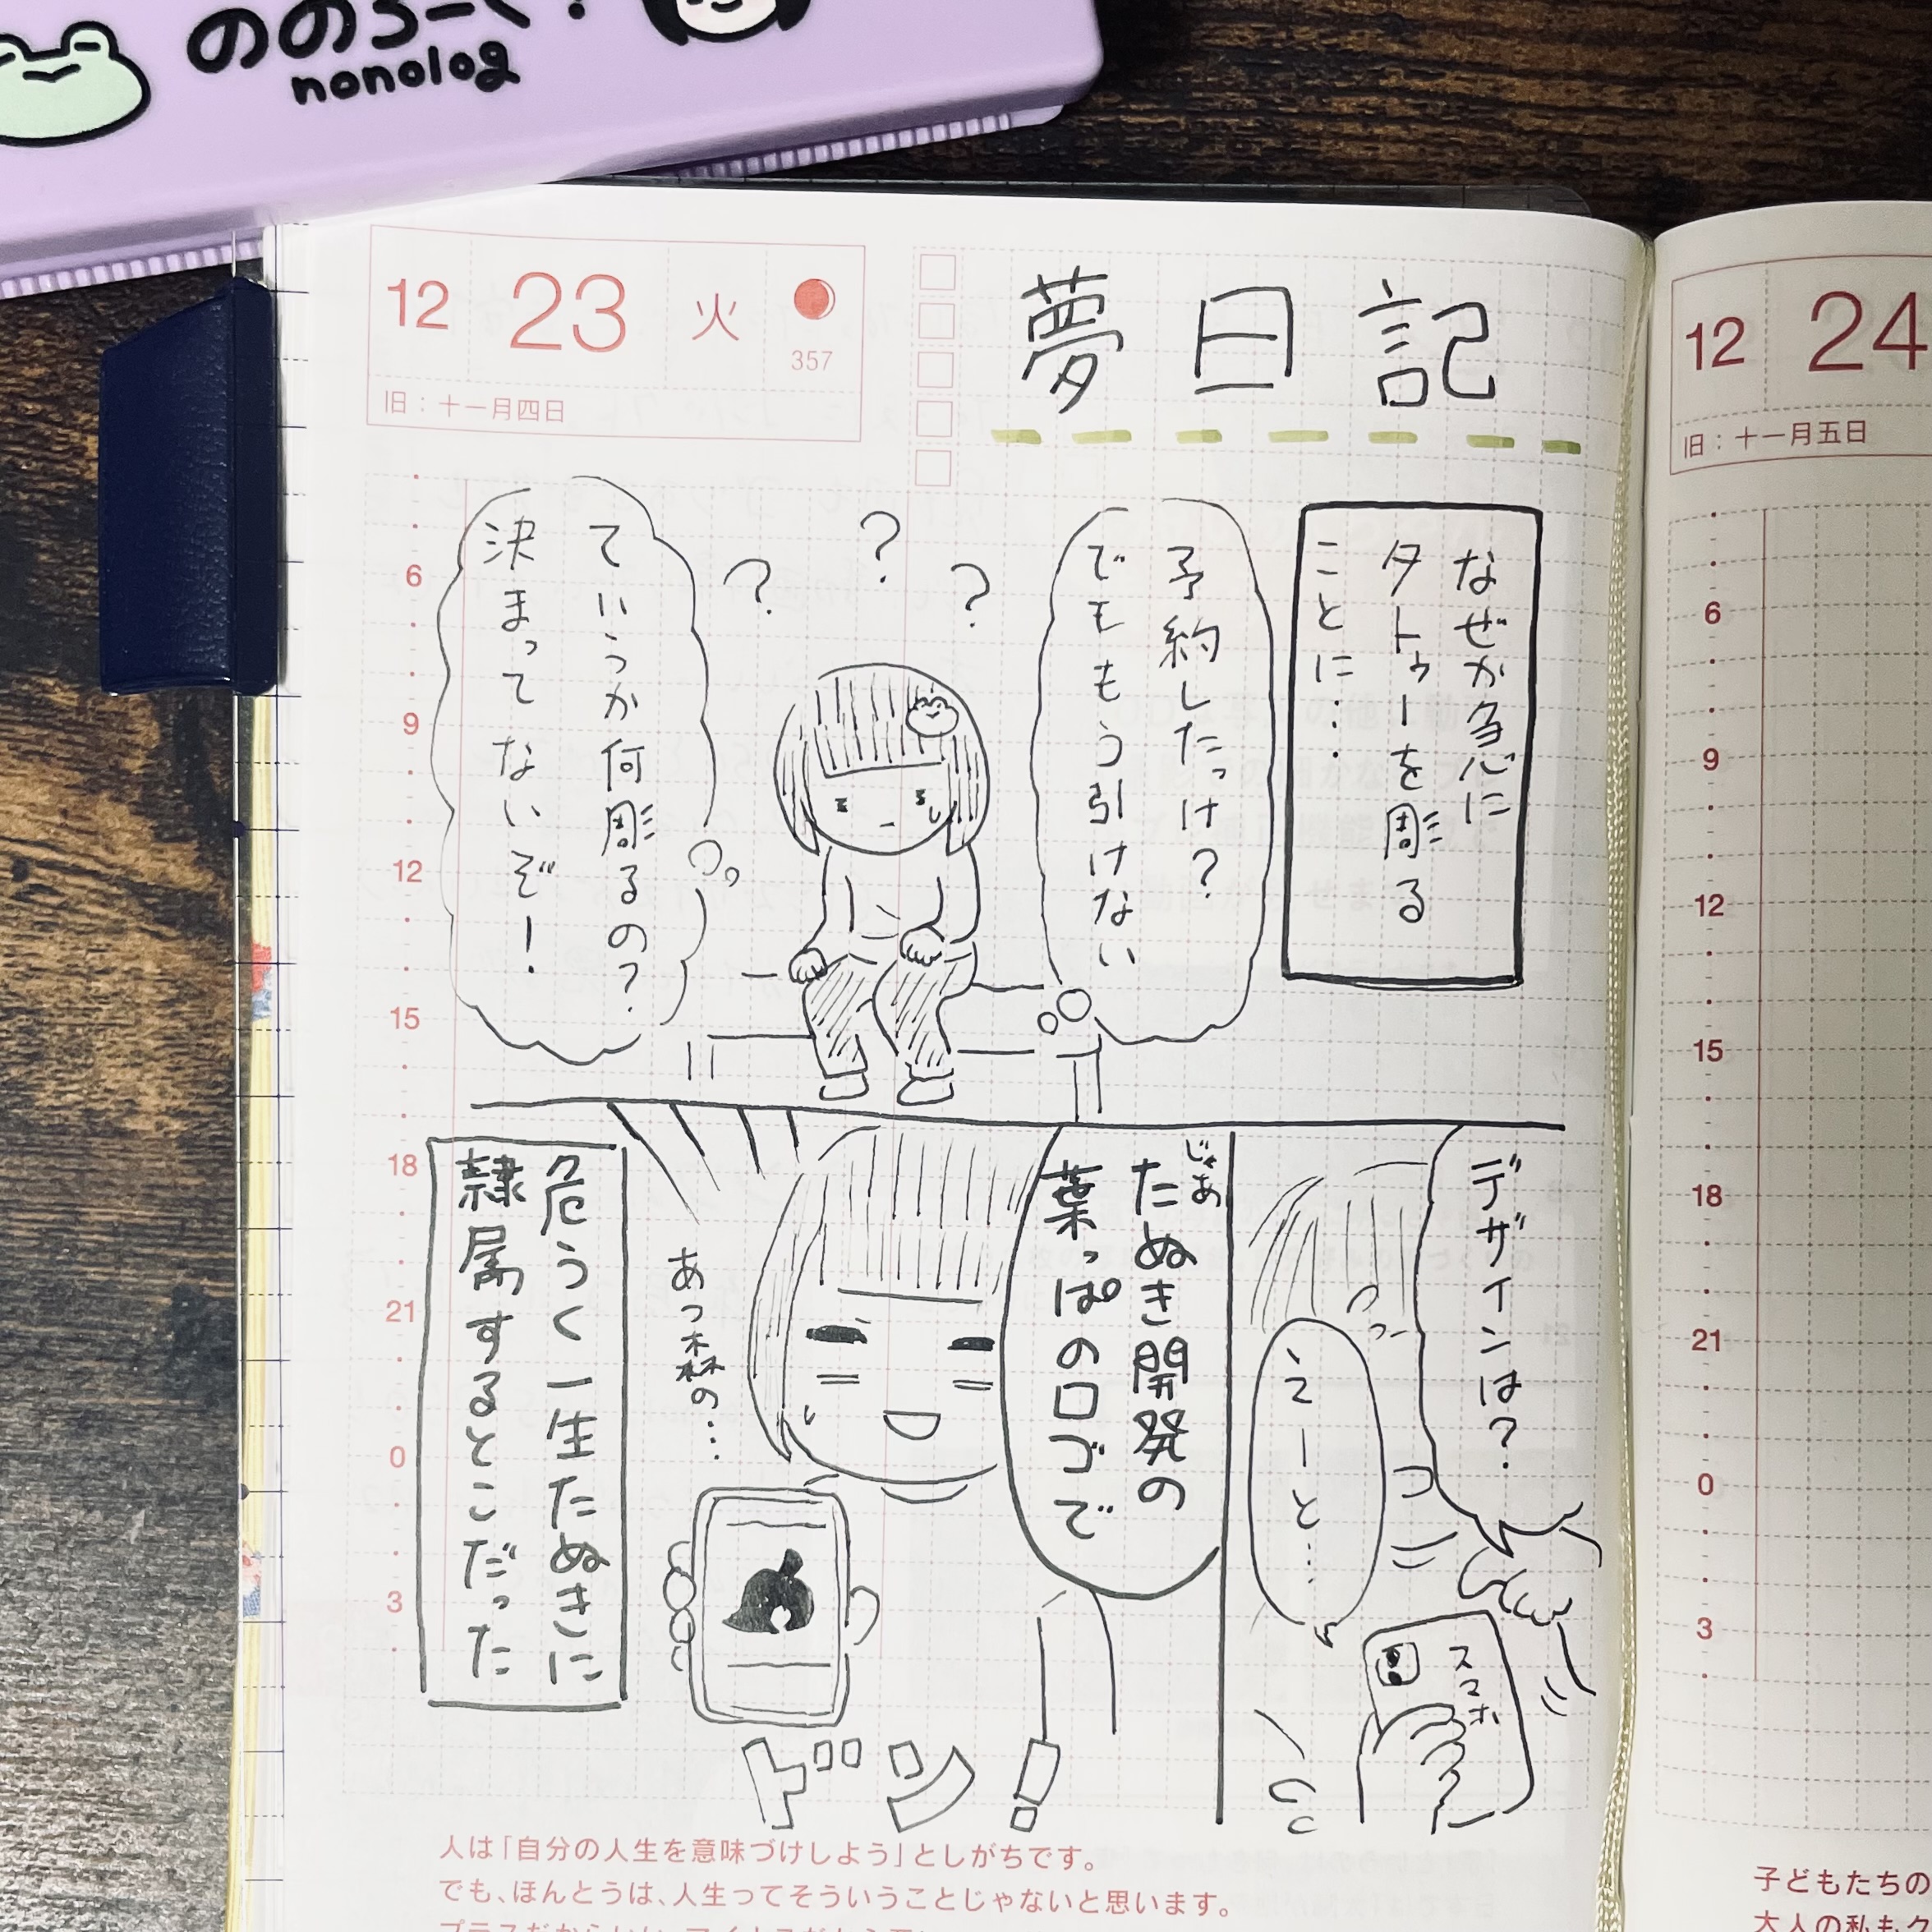 nonolog
12 23 火
357
旧：十一月四日
夢日記
なぜか急に
タトゥーを彫る
ことに…
予約したっけ？
でももう引けない
？
？
？
ていうか何彫るの？
決まってないぞ！
デザインは？
えーと…
スマホ
じゃあ
たぬき開発の
葉っぱのロゴで
あつ森の…
ドン！
危うく一生たぬきに
隷属するとこだった
6
9
12
15
18
21
0
3
人は「自分の人生を意味づけしよう」としがちです。
でも、ほんとうは、人生ってそういうことじゃないと思います。
12 24
旧：十一月五日
6
9
12
15
18
21
0
3
子どもたちの